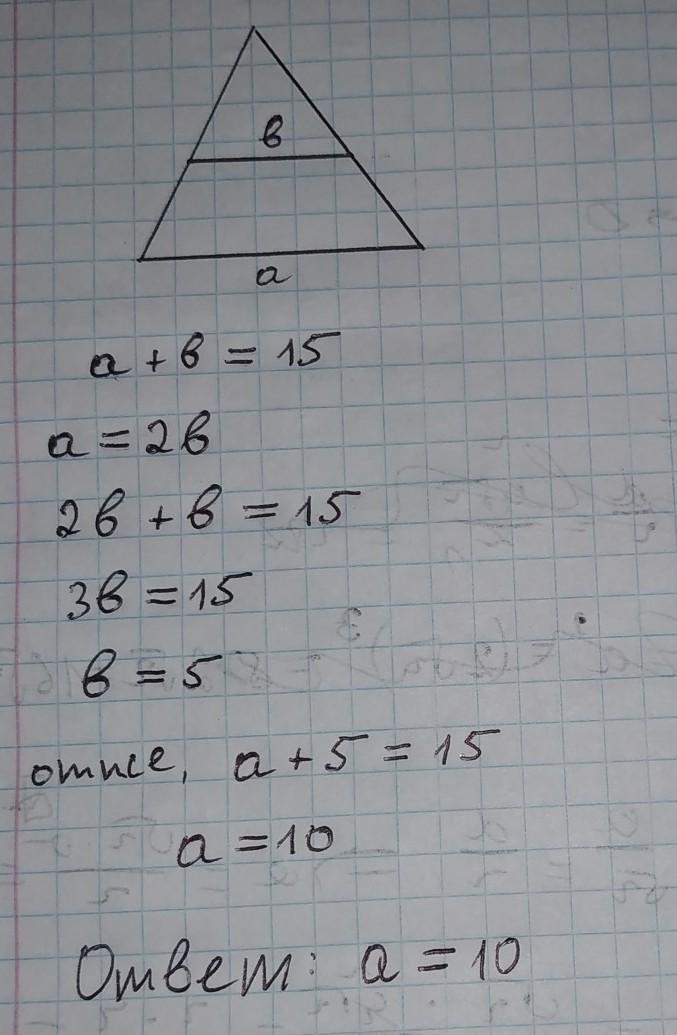 в
а
а + в = 15
а = 2в
2в + в = 15
3в = 15
в = 5
отже, а + 5 = 15
а = 10
Ответ: а = 10